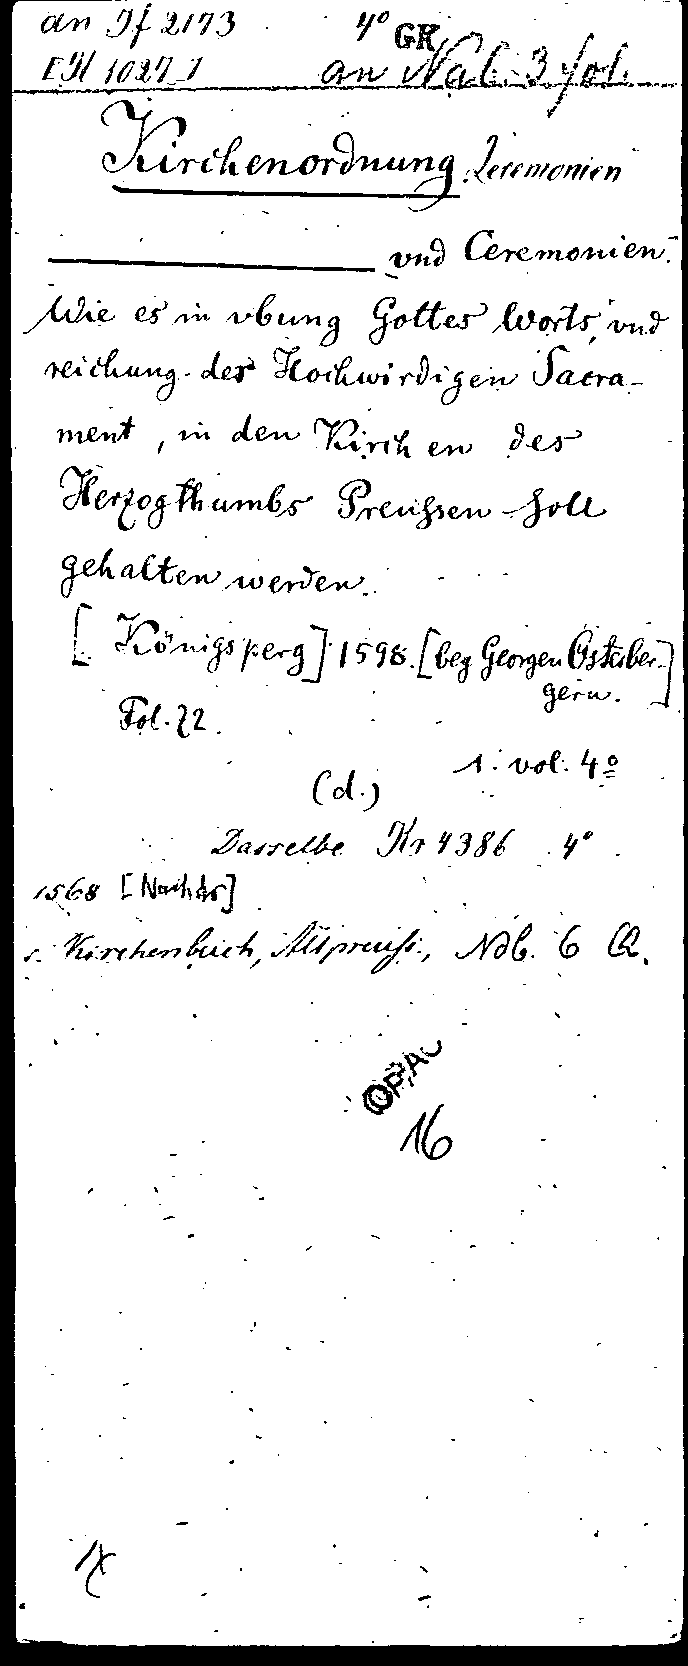 an If 2173 4° GK
EH 1027-1 an Nab. 3 fol.
Kirchenordnung Ceremonien
und Ceremonien.
Wie es in vbung Gottes Worts, vnd
reichung der Hochwirdigen Sacra-
ment, in den Kirchen des
Herzogthumbs Preussen soll
gehalten werden.
[Königsperg] 1598. [bey Georgen Osterber-
gern.]
Fol. 72.
1. vol. 4°
(d.)
Dasselbe Kr 4386 4°
1568
s. Kirchenbuch, Altpreuss., Ndb. 6 Q.
OPAC
16